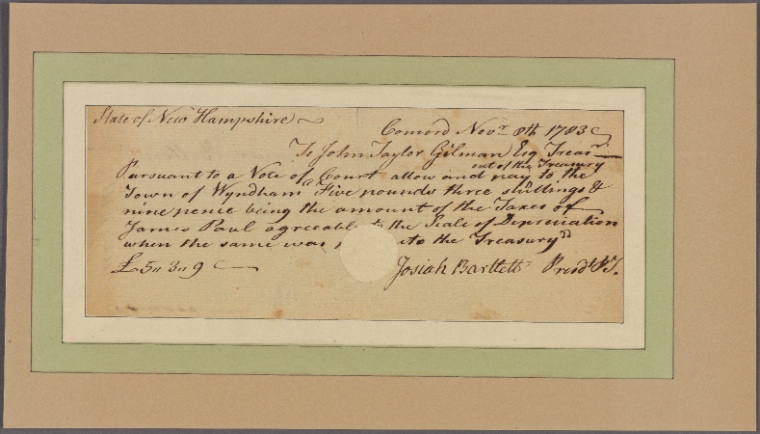 State of New Hampshire
Concord Novr. 8th 1783
To John Taylor Gilman Esq Treasr
out of the Treasury
Pursuant to a Vote of Court allow and pay to the
Town of Wyndham Five pounds three shillings &
nine pence being the amount of the Taxes of
James Paul agreeable to the Scale of Depreciation
when the same was into the Treasury
£5" 3" 9
Josiah Bartlett Presidt P.T.